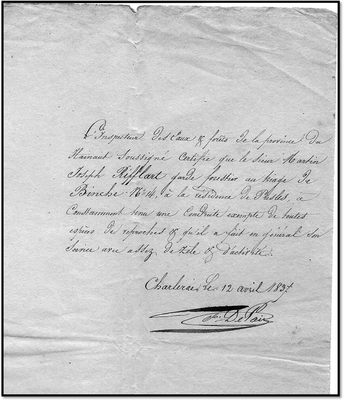 L'Inspecteur Des Eaux & forêts de la province du
Hainaut Soussigné Certifie que le sieur Martin
Joseph Rifflart garde forestier au triage de
Binche N° 14, à la résidence de Presles, a
Constamment tenu une Conduite exempte de toutes
espèces de reproches & qu'il a fait en général son
Service avec assez de zèle & d'activité.
Charleroi, Le 12 avril 1837